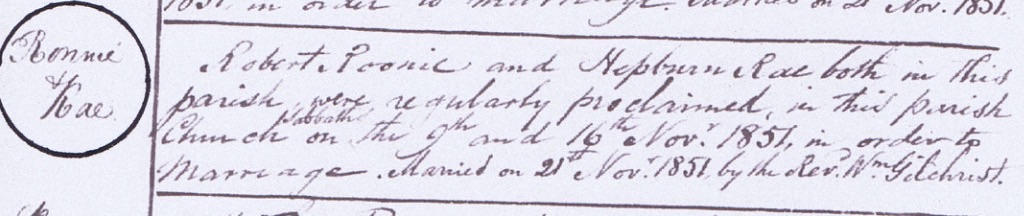 1851, in order to marriage. Married on 21 Nov. 1851.
Ronnie
& Rae
Robert Roonie and Hepburn Rae both in this
parish, were regularly proclaimed, in this parish
Church Sabbaths on the 9th and 16th Novr. 1851, in order to
Marriage. Married on 21st Novr. 1851, by the Revd. Wm. Gilchrist.